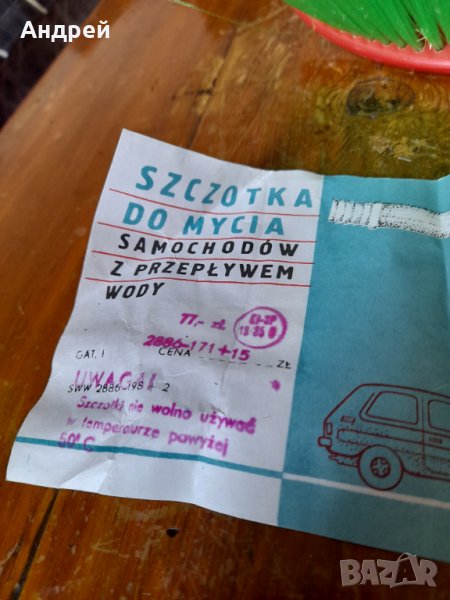 Андрей
SZCZOTKA
DO MYCIA
SAMOCHODÓW
Z PRZEPŁYWEM
WODY
77,- zł
2886-171+15
GAT. I CENA ZŁ
UWAGA!
SWW 2886-198 + 2
Szczotki nie wolno używać
w temperaturze powyżej
50°C
BAZAR